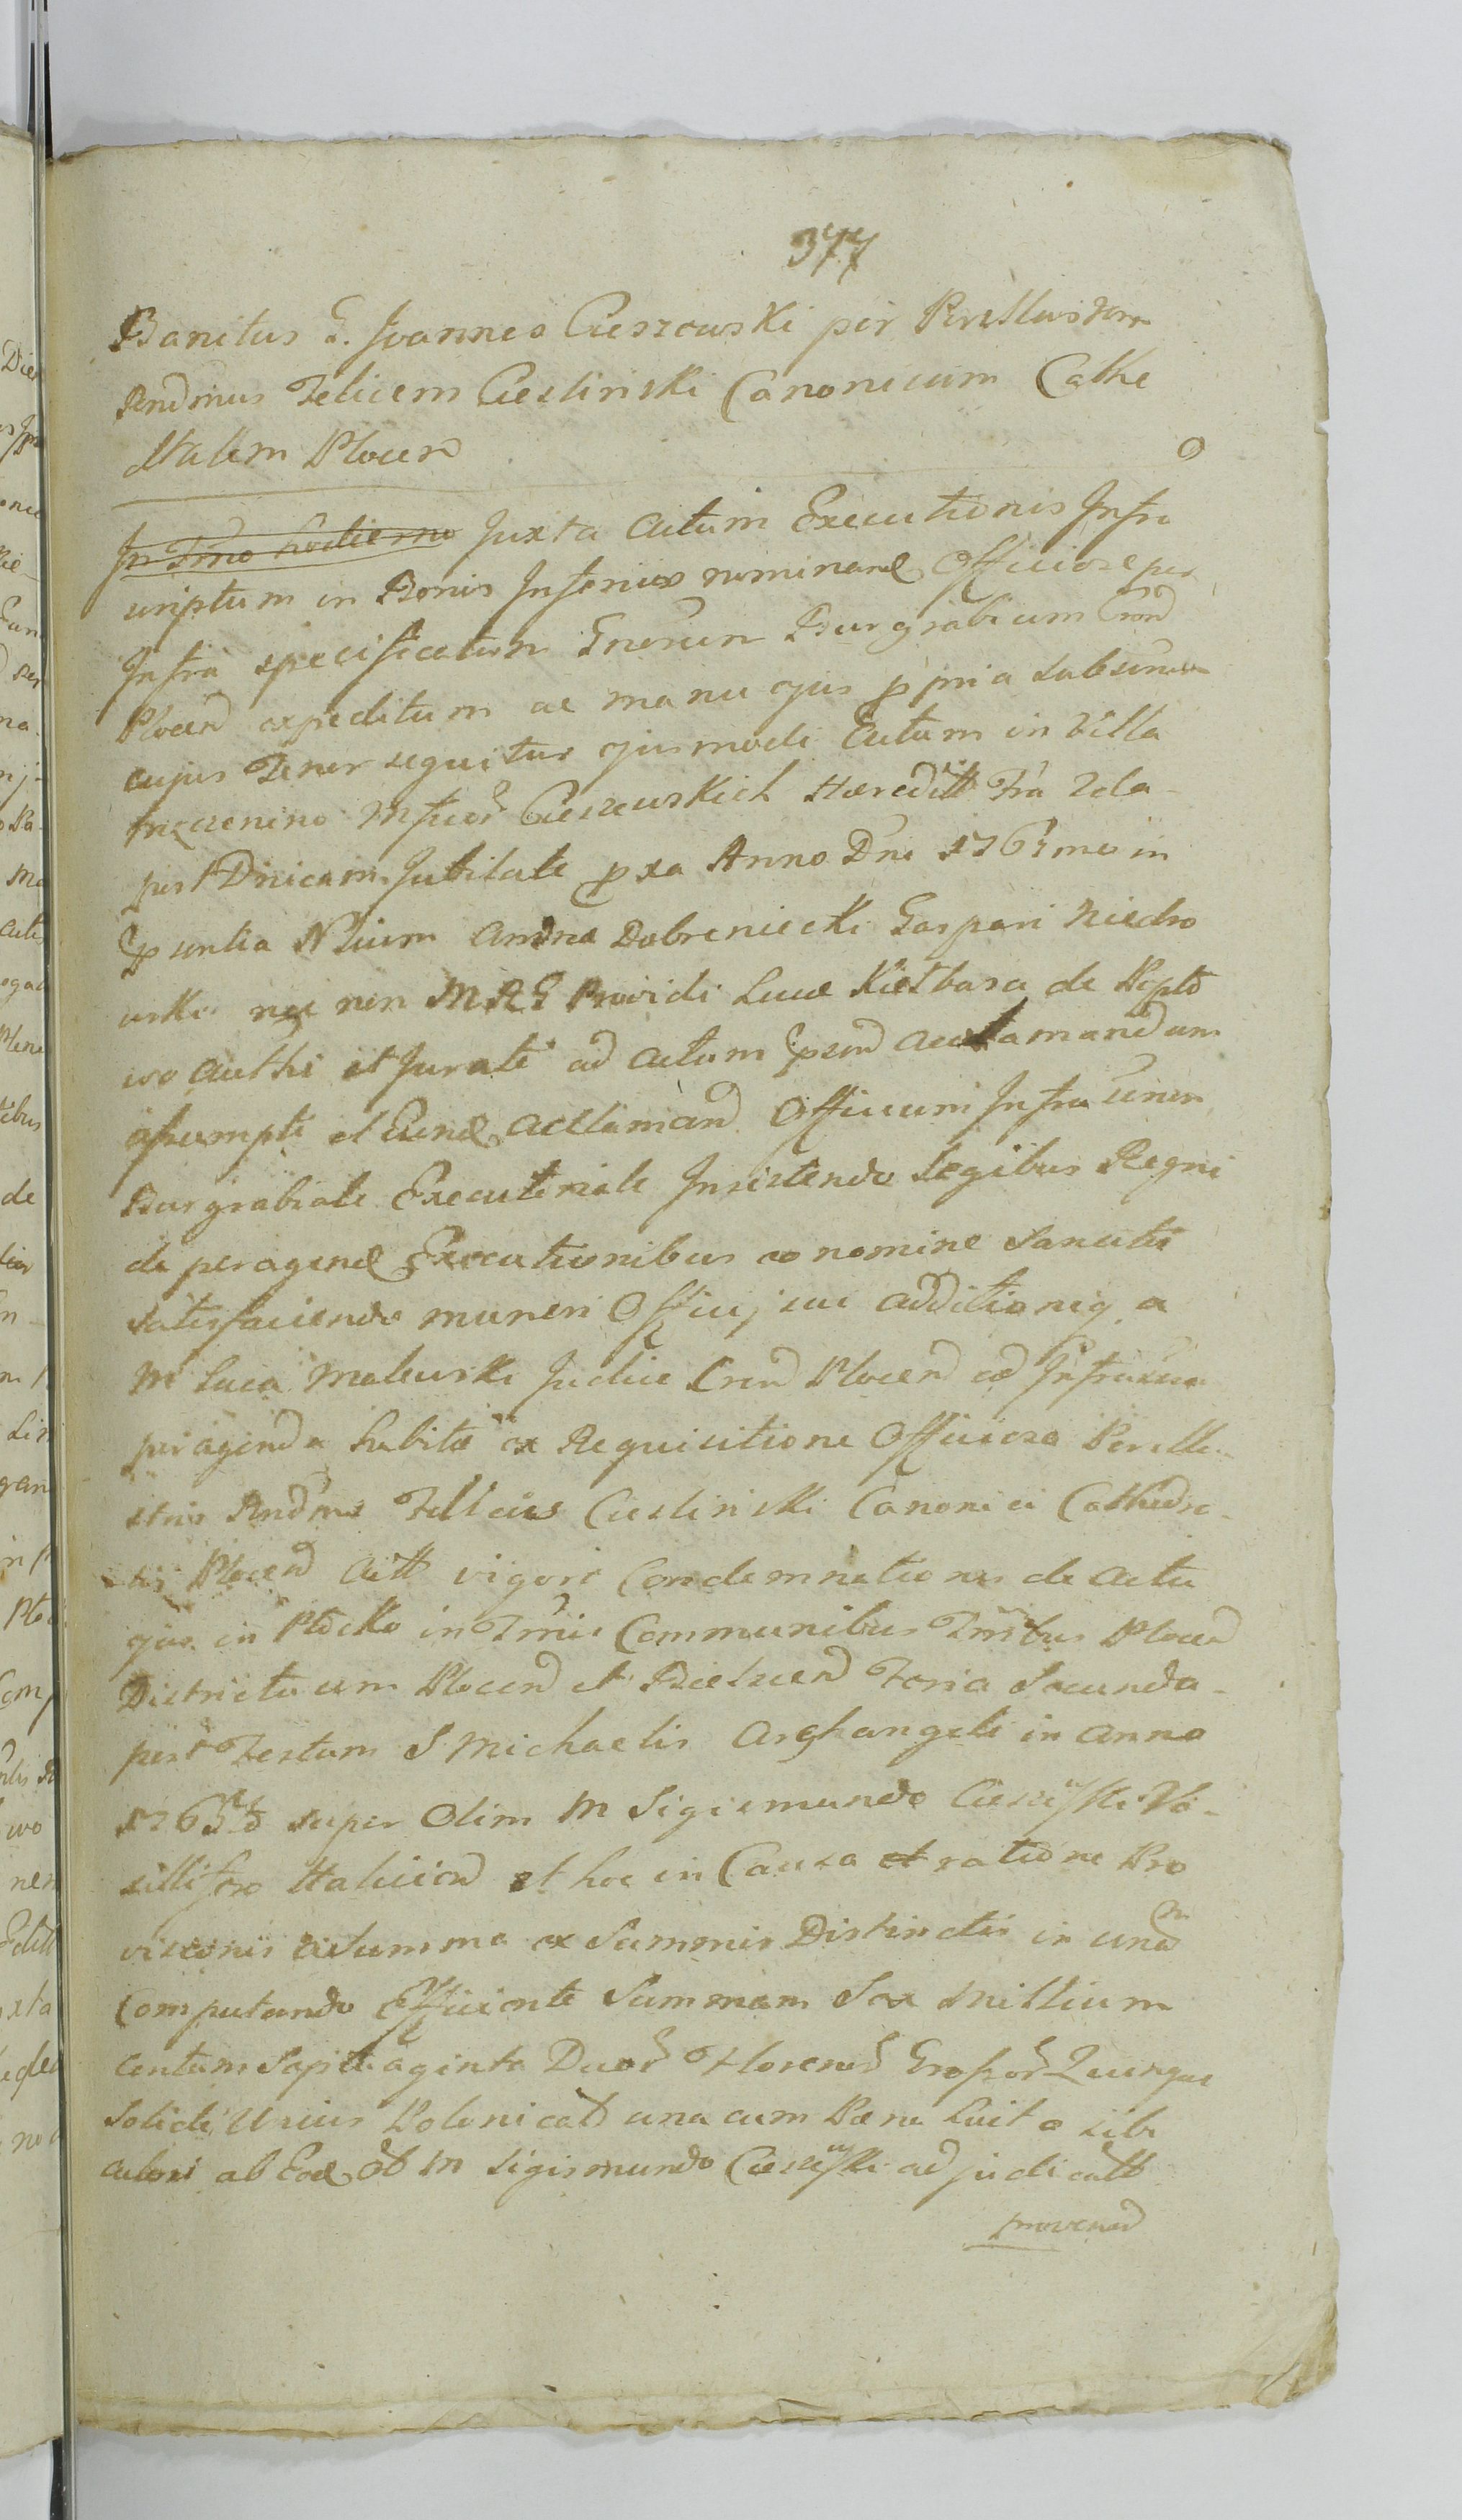 377
Banitus G. Joannes Cieszewski per Perillustrem
Rndmus Felicem Cieslinski Canonicum Cathe
dralem Plocen
In Tmo hodierno Juxta Actum Executionis Infra
scriptum in Bonis Inferius nominand Officiose per
Infra specificatum Gnerum Burgrabium Crend
Plocen expeditum ac manu ejus ppria subscript
cujus Tenor sequitur ejusmodi Actum in Villa
Mficor Cieszewskich Haereditt Fra 2da
post Dnicam Jubilate pxa Anno Dni 1765 mo in
Psentia Nlium Andrea Dobreniecki Gaspari Niedro
wski nec non MRG Providi Lucae Kietbasa de
wo authi et Jurati ad actum psend acclamandum
assumpti et Eund acclamand Officium Infra
Burgrabiale Executoriale Insistendo Legibus Regni
de peragend Executionibus eo nomine Sancitis
satisfaciendo muneri Officij sui additioniq a
M Luca Malewski Judice Crend Plocend ad
peragenda habitae ex Requisitione Officiosa Perillu
stris Rndmi Felicis Cieslinski Canonici Cathedra
lis Plocend Actt vigore Condemnationis de Actu
ejus in Plocko in Tmis Communibus Tmibus Plocend
Districtuum Plocend et Bielscend Feria Secunda
post Festum S Michaelis Archangeli in Anno
super Olim M Sigismundo Cieszewski Ve
xillifero Halicien et hoc in Causa et ratione Pro
visionis a Summa ex Summis Distinctis in unam
Computando Efficiente Summam Sex Millium
Centum Septuaginta Duor Florenor Grossor Quinque
Solidi Unius Polonicalt una cum Paena Luit a sibi
actori ab Eod ol M Sigismundo Cieszewski adjudicatt
provenend